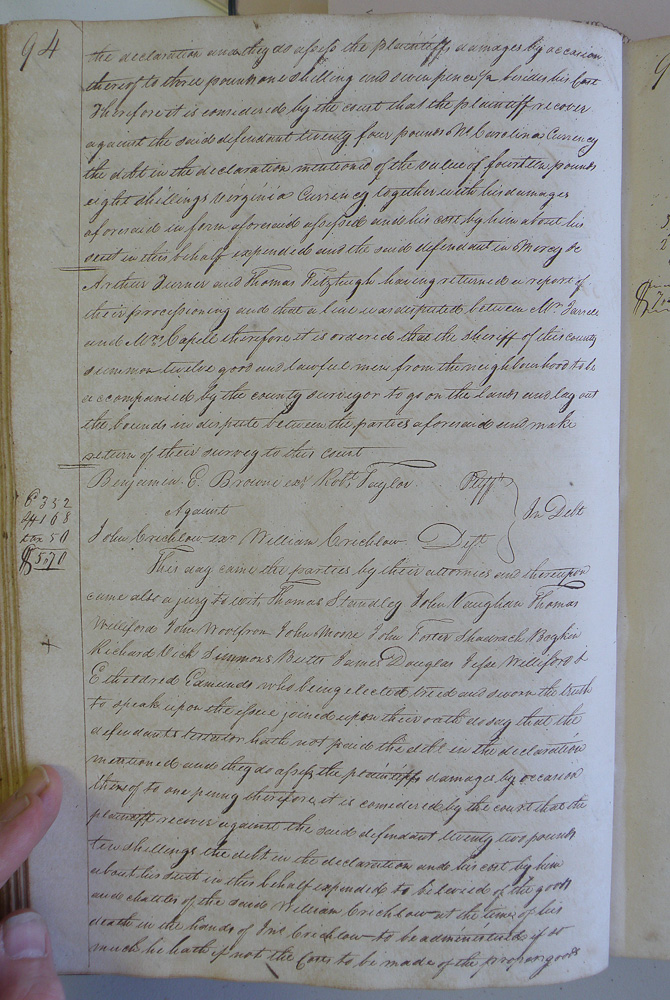 94
the declaration and they do assess the plaintiffs damages by occasion
thereof to three pounds one shilling and seven pence besides his Cost
Therefore it is considered by the court that the plaintiff recover
against the said defendant twenty four pounds No Carolina Currency
the debt in the declaration mentioned of the value of fourteen pounds
eight shillings Virginia Currency together with his damages
aforesaid in form aforesaid assessed and his cost by him about his
suit in this behalf expended and the said defendant in Mercy &c
Arthur Turner and Thomas Fitzhugh having returned a report of
their processioning and that a line was disputed between Mr.
and Mrs. Capell therefore it is ordered that the sheriff of this county
summon twelve good and lawful men from the neighbourhood to be
accompanied by the county surveyor to go on the lands and lay out
the bounds in dispute between the parties aforesaid and make
return of their survey to this court
Benjamin E. Browne exr Robt. Taylor Pltff
Against
In Debt
John Crichlow exr William Crichlow Deft.
352
4108
tax 50
$5,10
This day came the parties by their attornies and thereupon
came also a jury to wit Thomas Standley John Vaughan Thomas
Welliford John Woolfrom John Moore John Foster Shadrach Boykin
Richard Vick Simmons Butts James Douglas Jesse Williford &
Etheldred Edmunds who being elected tried and sworn the truth
to speak upon the issue joined upon their oath do say that the
defendants testator hath not paid the debt in the declaration
mentioned and they do assess the plaintiffs damages by occasion
thereof to one penny therefore it is considered by the court that the
plaintiff recover against the said defendant twenty two pounds
ten shillings the debt in the declaration and his cost by him
about his suit in this behalf expended to be levied of the goods
and chattles of the said William Crichlow at the time of his
death in the hands of Jno Crichlow to be administered if so
much he hath if not the Costs to be made of the proper goods